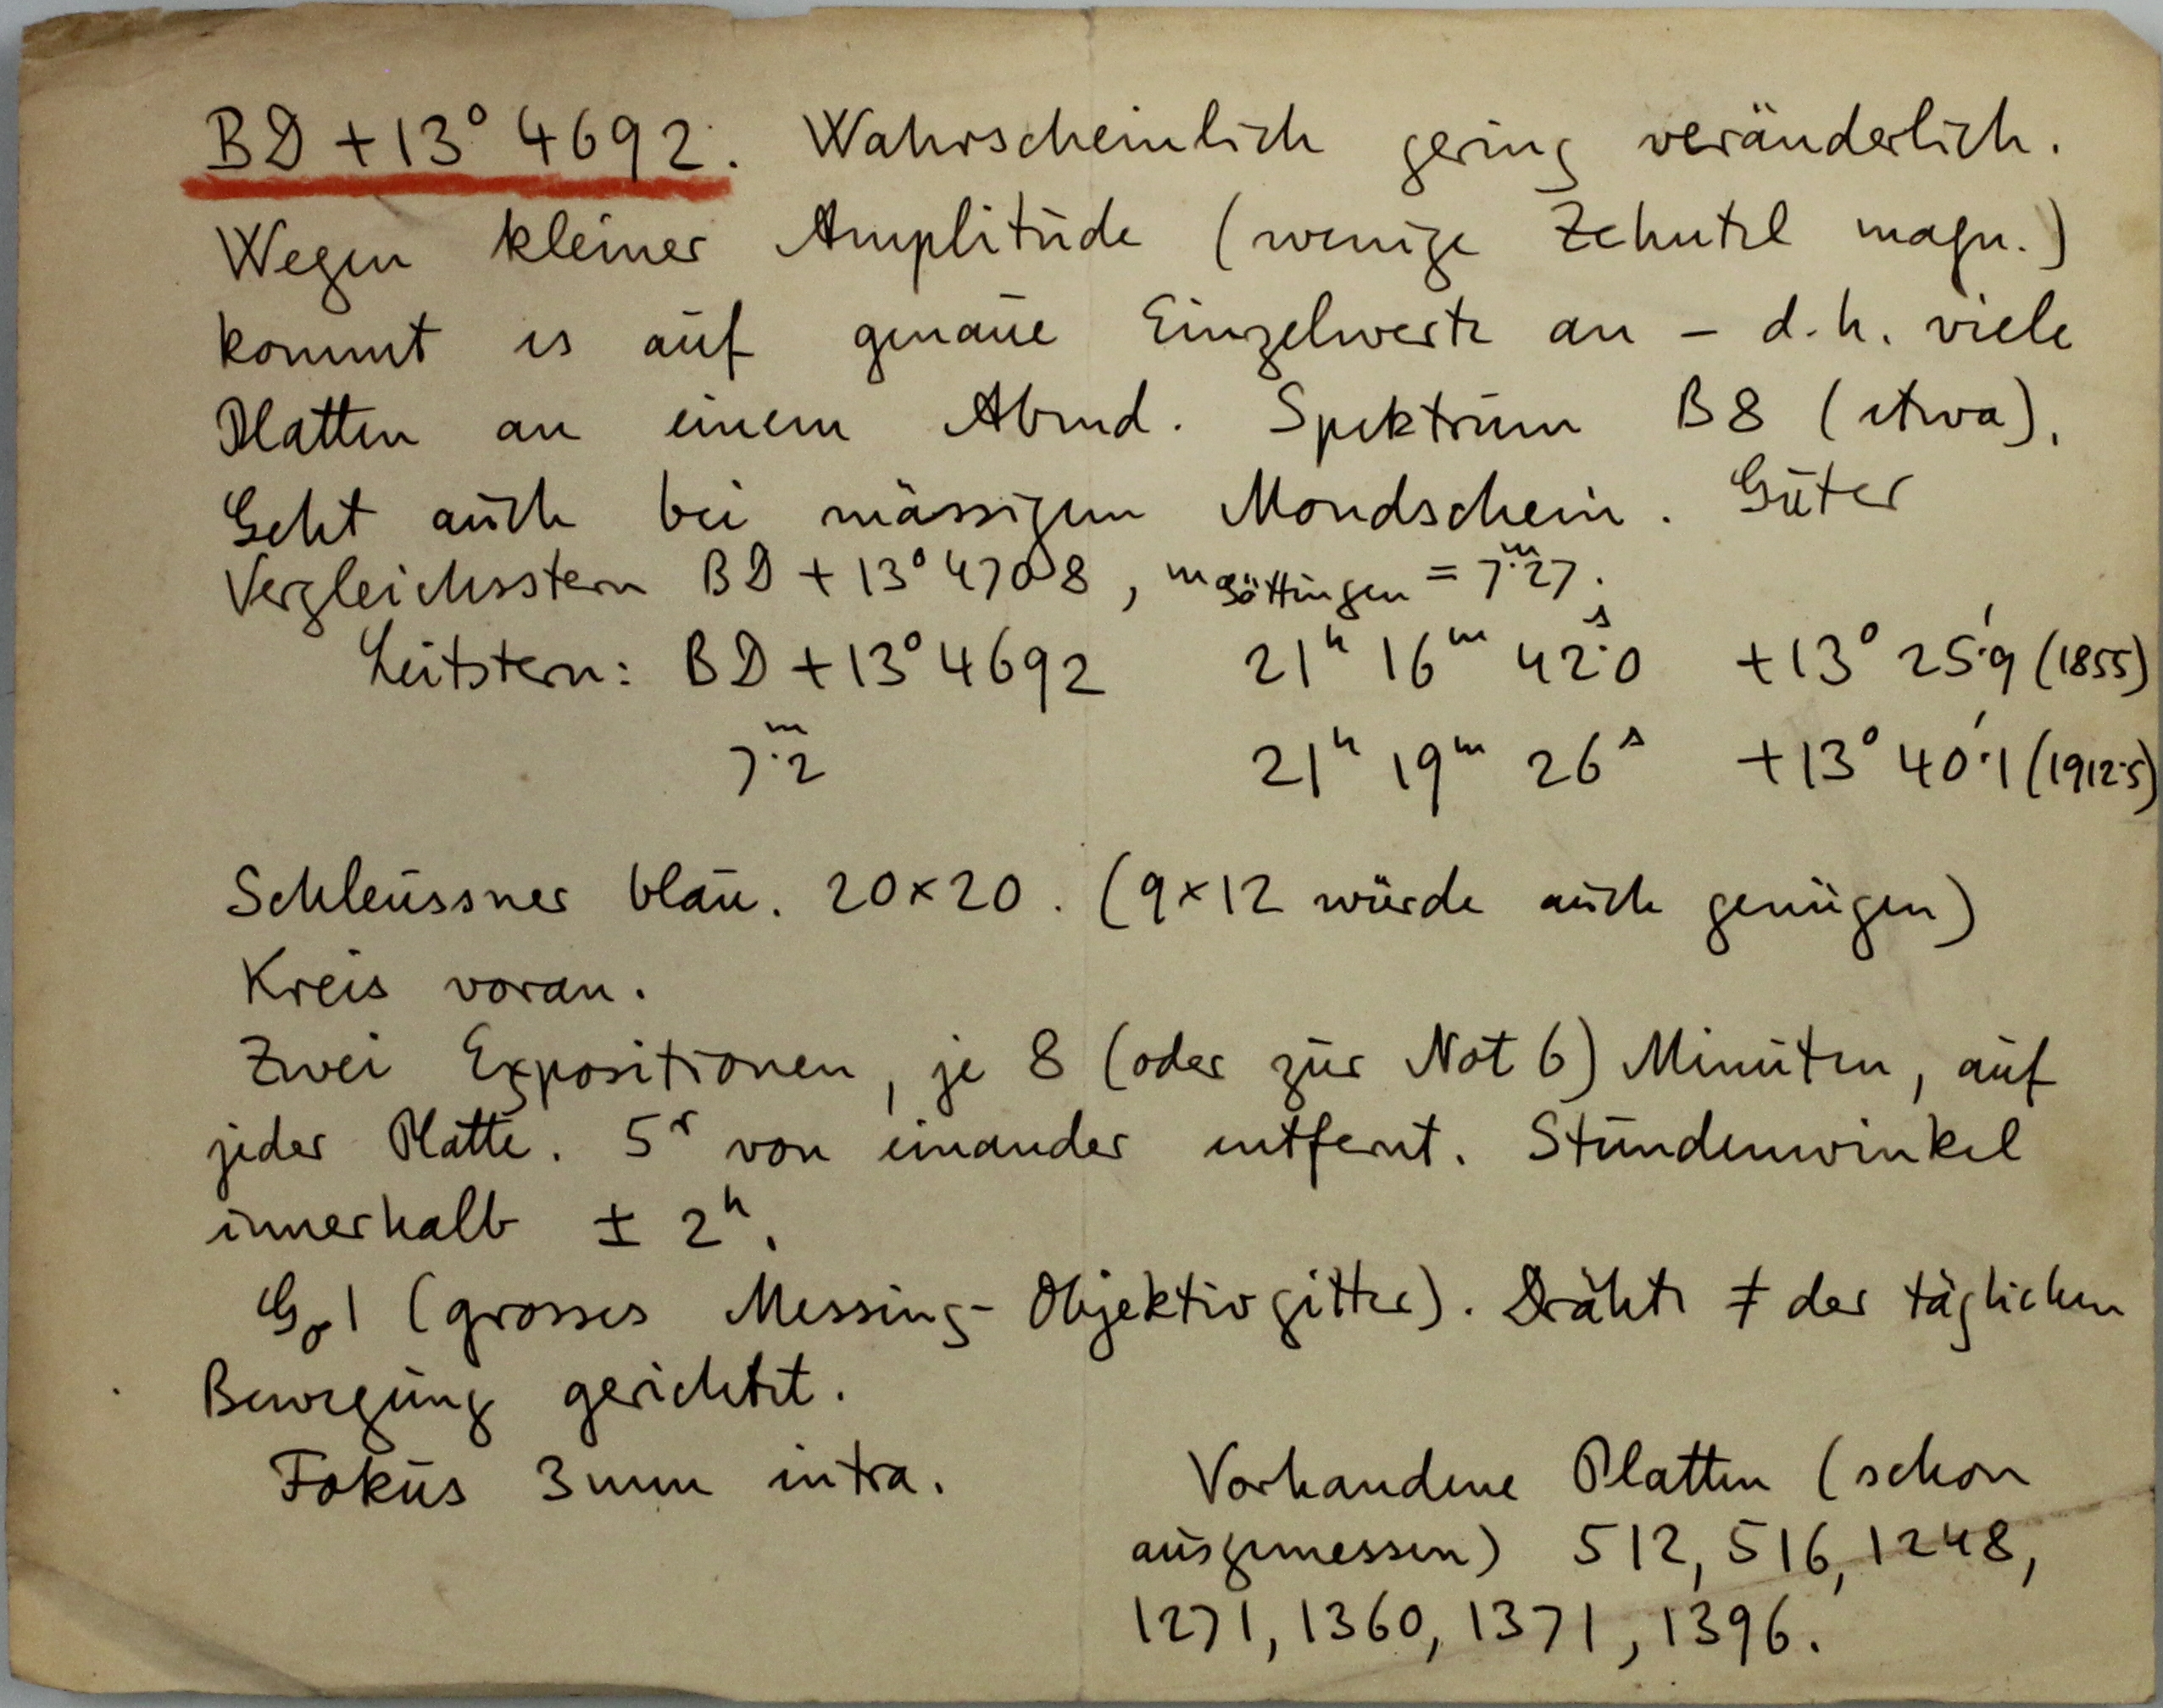 BD +13° 4692. Wahrscheinlich gering veränderlich.
Wegen kleiner Amplitude (wenige Zehntel magn.)
kommt es auf genaue Einzelwerte an – d.h. viele
Platten an einem Abend. Spektrum B8 (etwa).
Geht auch bei mässigem Mondschein. Guter
Vergleichsstern BD +13° 4708, m Göttingen = 7ᵐ.27.
Leitstern: BD +13° 4692 21ʰ 16ᵐ 42ˢ.0 +13° 25'.9 (1855)
7ᵐ.2 21ʰ 19ᵐ 26ˢ +13° 40'.1 (1912.5)
Schleussner blau. 20×20. (9×12 würde auch genügen)
Kreis voran.
Zwei Expositionen, je 8 (oder zur Not 6) Minuten, auf
jeder Platte. 5ʳ von einander entfernt. Stundenwinkel
innerhalb ± 2ʰ.
(grosses Messing-Objektivgitter). Drähte ≠ der täglichen
Bewegung gerichtet.
Fokus 3mm intra.
Vorhandene Platten (schon
ausgemessen) 512, 516, 1248,
1271, 1360, 1371, 1396.